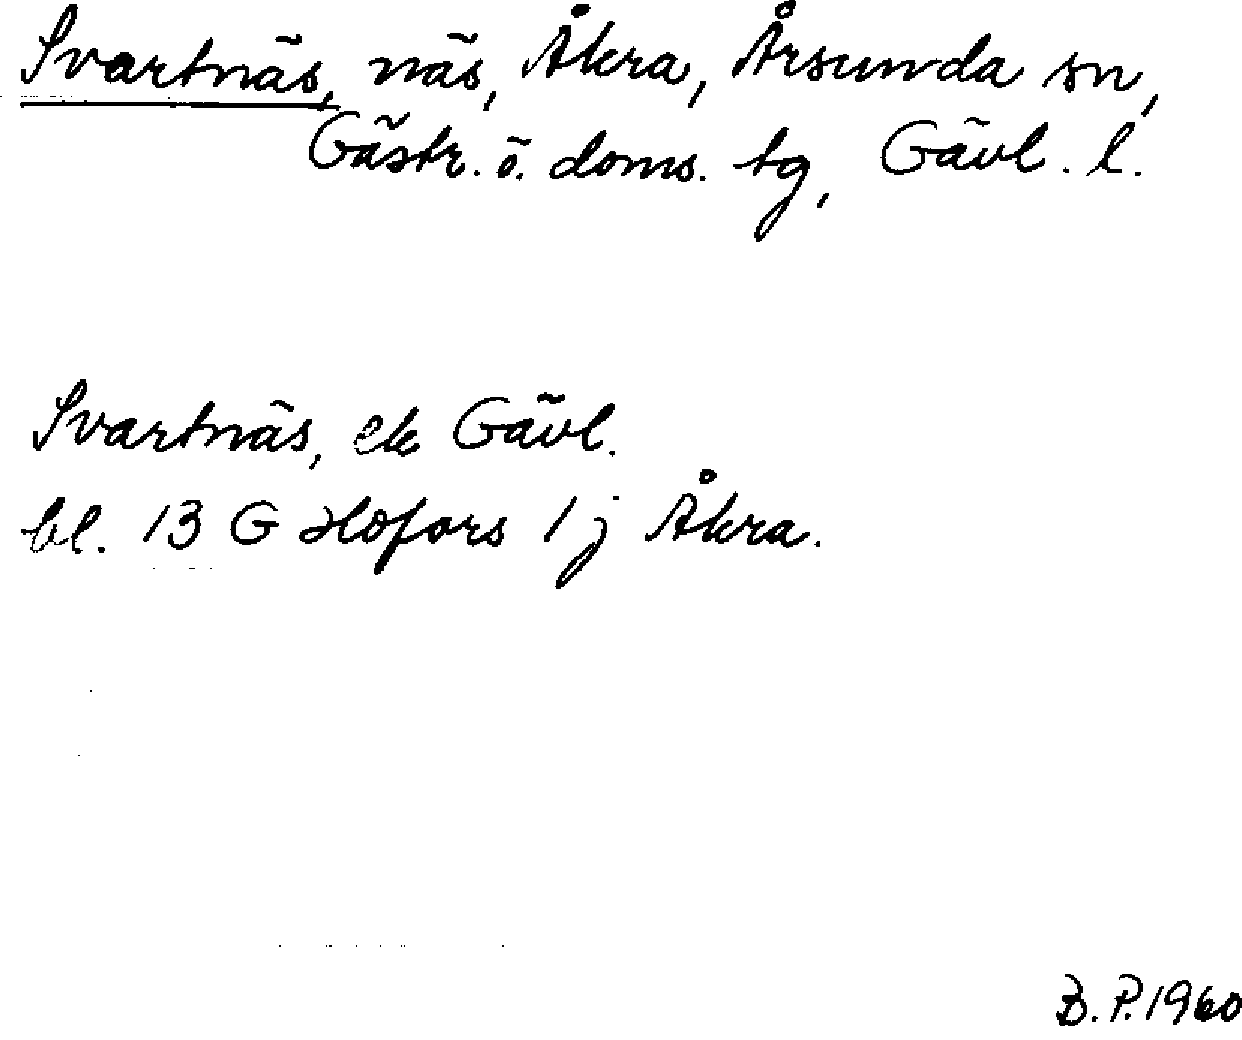 Svartnäs, näs, Åkra, Årsunda sn,
Gästr. ö. doms. tg, Gävl. l.
Svartnäs, ek Gävl.
bl. 13 G Hofors 1 j Åkra.
B. P. 1960